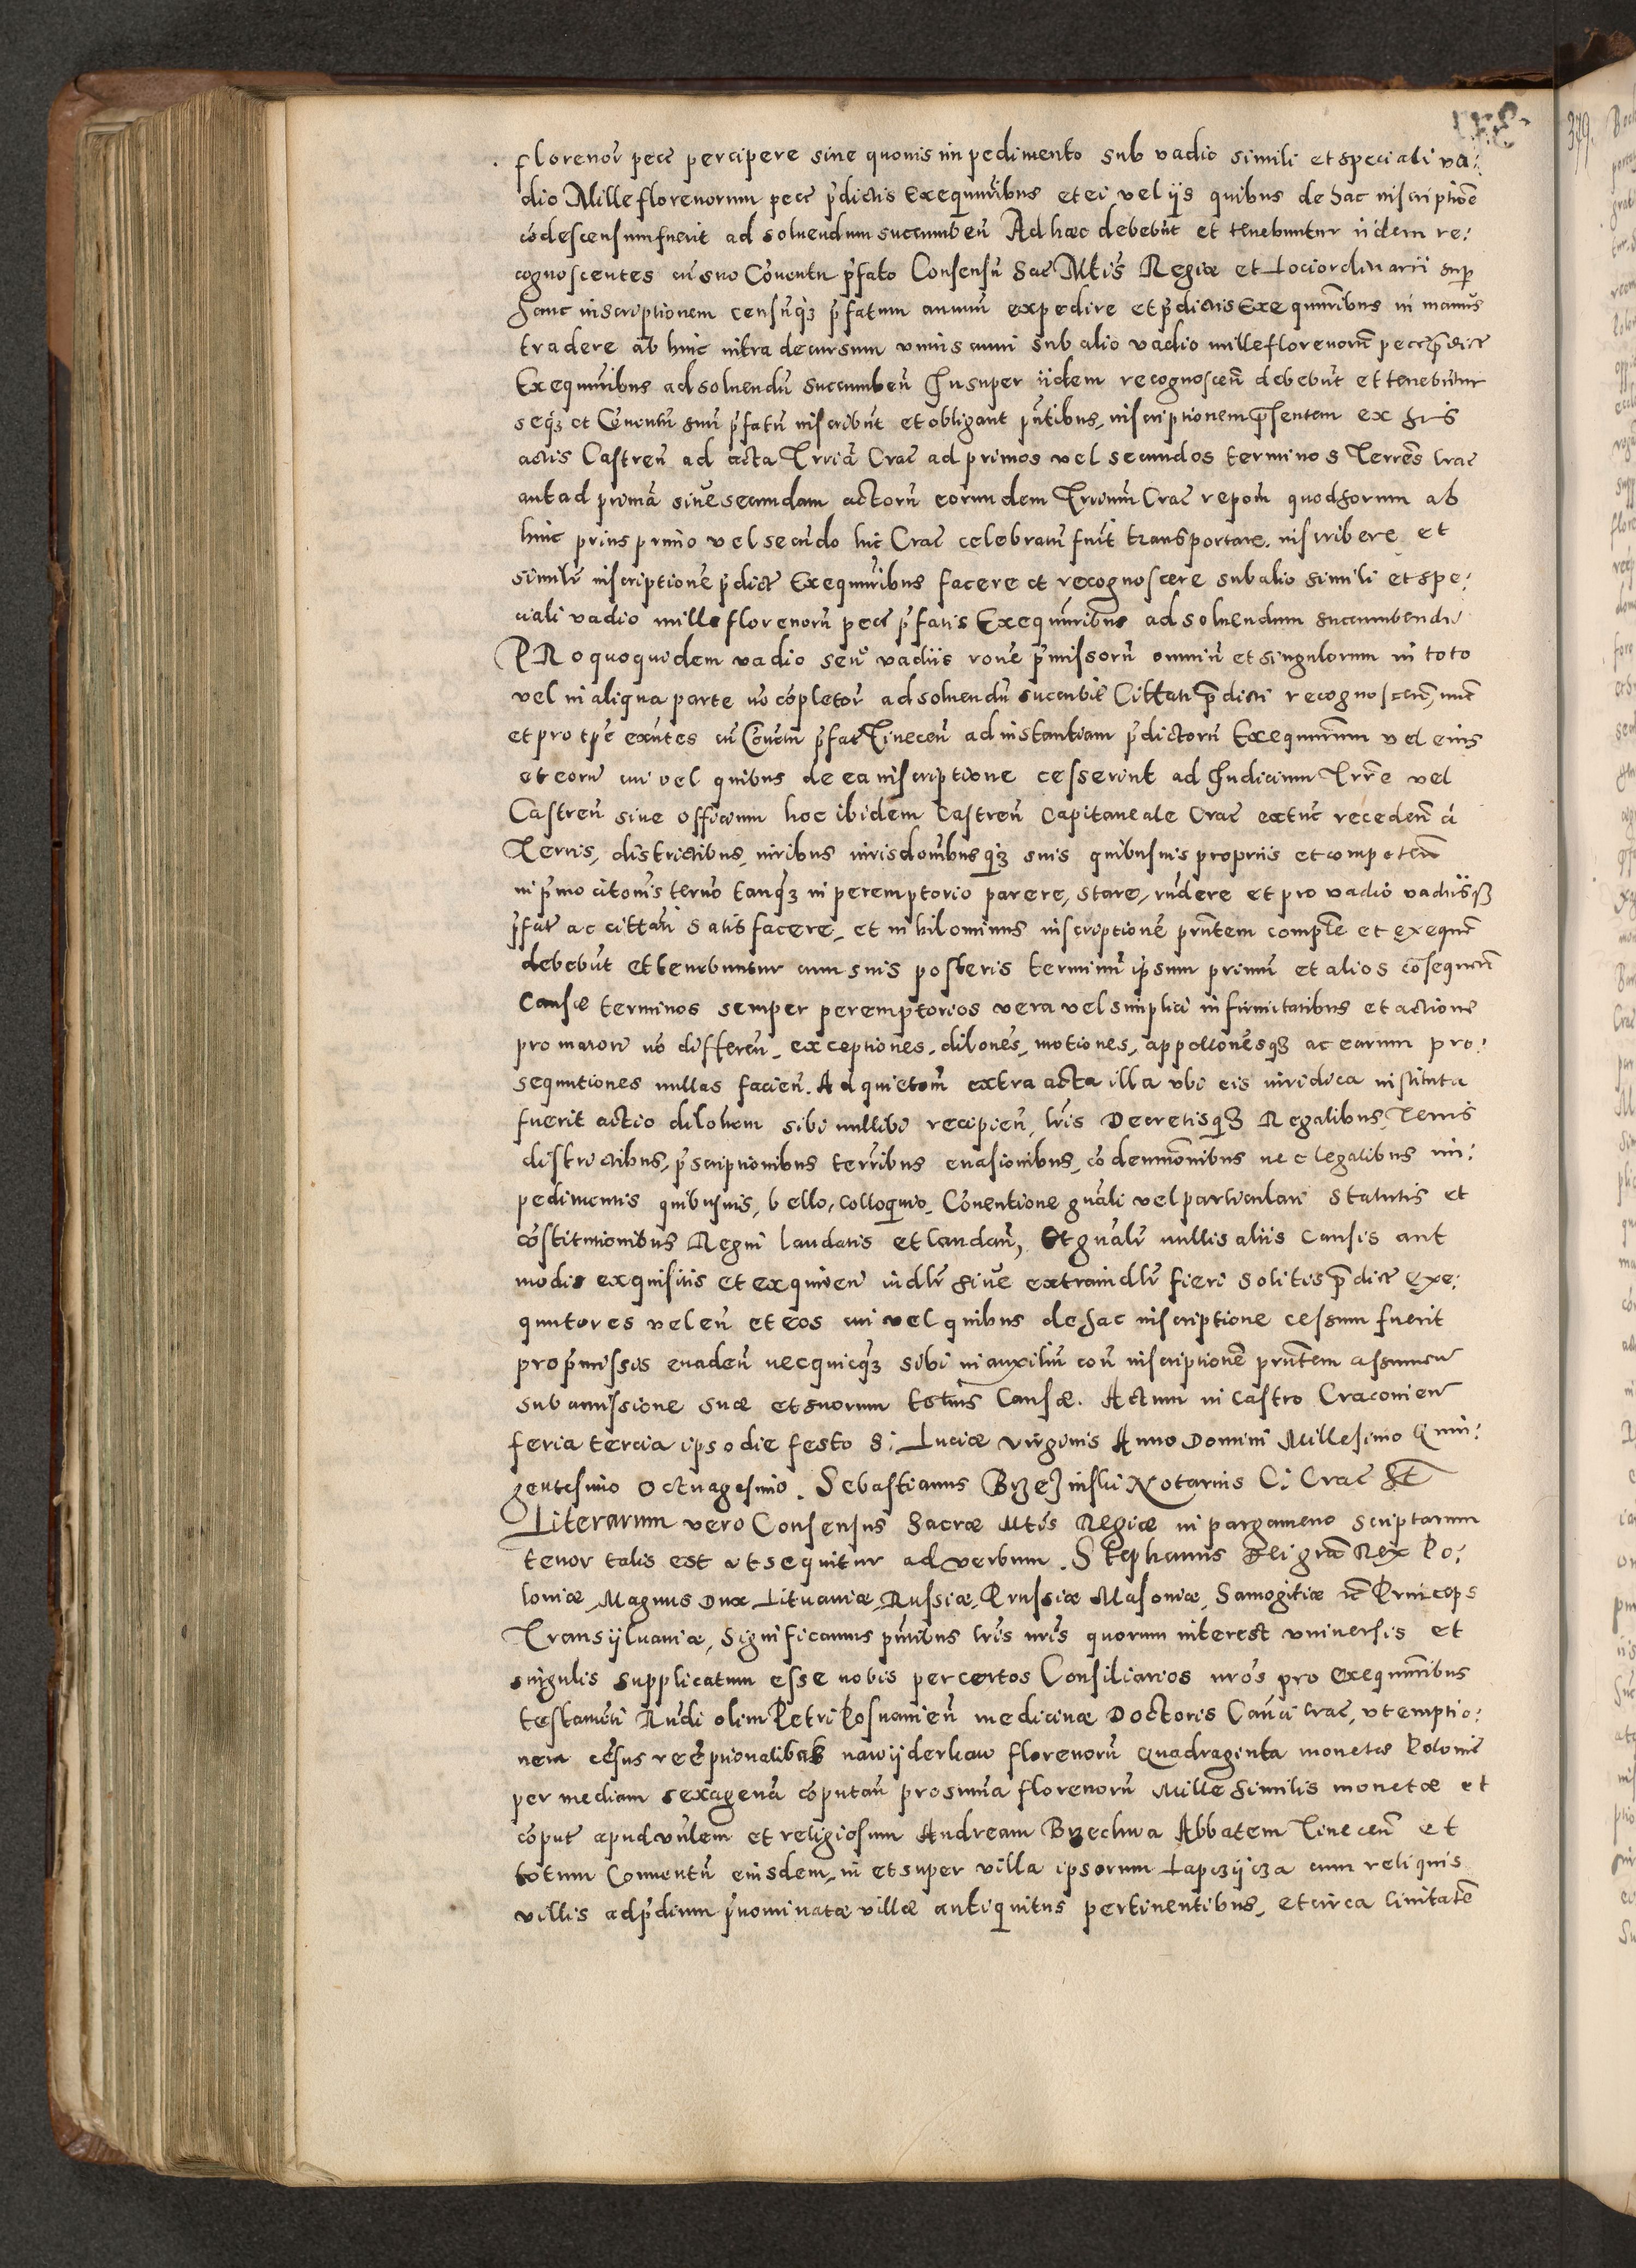 florenor̄ pecc̄ percipere sine quouis impedimento sub vadio simili et speciali va:
dio Mille florenorum pecc̄ p̄dictis Exequutorībus et ei vel ijs quibus de hac inscriptiōe
cōdescensum fuerit ad soluendum succumbeñ Ad hæc debebūt et tenebuntur iidem re:
cognoscentes cū suo Cōuentu p̄fato Consensū Sac̄ Mtis Regiæ et Loci ordinarii sup̄
hanc inscriptionem censūq3 p̄fatum annuū expedire et p̄dictis Exequutorībus in manus
tradere ab hinc intra decursum vnius anni sub alio vadio mille florenorū pecc̄ p̄dict̄
Exequutorībus ad soluendū succumbeñ Insuper iidem recognosceñ debebūt et tenebūtur
seq3 et Cōuentū suū p̄fatū inscribūt et obligant pn̄tibus, inscriptionem p̄sentem ex his
actis Castreñ ad acta Trriā Crac̄ ad primos vel secundos terminos Terrēs Crac̄
aut ad primā siue secundam actorū eorundem Trrium Crac̄ repoñ quod forum ab
hinc prius primo vel secūdo hic Crac̄ celebratū fuīt transportare. inscribere et
similē inscriptionē p̄dict̄ Exequutorībus facere et recognoscere sub alio simili et spe:
ciali vadio mille florenorū pecc̄ p̄fatis Exequutorībus ad soluendum succumbendū
PRo quoquidem vadio seu vadiis rōne p̄missorū omniū et singulorum in toto
vel in aliqua parte nō cōpletor̄ ad soluendū succūbēt Cittati p̄dicti recognosceñ, nunc
et pro tp̄e exn̄tes cū Cōuētu p̄fat̄ Tineceñ ad instantiam p̄dictorū Exequutorum vel eius
et eorū cui vel quibus de ea inscriptione cesserint ad Iudicium Trrē vel
Castreñ siue officium hoc ibidem Castreñ Capitaneale Crac̄ extūc recedeñ à
Terris, districtibus, iuribus iurisdōnibusq3 suis quibusuis propriis et competeñ
in p̄mo citōnis termo tanq3 in peremptorio parere, stare, rn̄dere et pro vadio vadiisq3
p̄fat̄ ac cittati satisfacere, et nihilominus inscriptionē pn̄tem complē et exequi
debebūt et tenebuntur cum suis posteris terminū ipsum primū et alios cōsequen̄
Causæ terminos semper peremptorios vera vel simplici infirmitatibus et actione
pro maiori nō differeñ, exceptiones, dilōnes, motiones, appellōnesq3 ac earum pro:
sequutiones nullas facieñ. Ad quietoñ extra acta illa vbi eis iuridica instituta
fuerit actio dilōnem sibi nullibi recipieñ, lrīs Decretisq3 Regalibus, Terris
districtibus, p̄scriptionibus terrībus euasionibus, cōdemnōnibus nec legalibus im:
pedimentis quibusuis, bello, colloquio, Cōuentione gn̄ali vel particulari statutis et
cōstitutionibus Regni laudatis et laudañ, Et gn̄alr̄ nullis aliis causis aut
modis exquisitis et exquireñ iudlr̄ siue extraiudlr̄ fieri solitis p̄dict̄ Exe:
quutores vel eū et eos cui vel quibus de hac inscriptione cessum fuerit
pro p̄missis euadeñ nec quicq3 sibi in auxiliū con̄ inscriptionē pn̄tem assumeñ
sub amissione suæ et suorum totius Causæ. Actum in Castro Cracouieñ
feria tercia ipso die festo S: Luciæ virginis Anno Domini Millesimo Quin:
gentesimo Octuagesimo. Sebastianus Brzezinski Notarius C: Crac̄ sst
Literarum vero Consensus Sacræ Mtis Regiæ in pargameno scriptarum
tenor talis est vt sequitur ad verbum. Stephanus Dei grā Rex Po:
loniæ, Magnus Dux Lituaniæ, Russiæ, Prussiæ Masouiæ, Samogitiæ etc Princeps
Transijluaniæ, Significamus pn̄tibus lrīs nrīs quorum interest vniuersis et
singulis supplicatum esse nobis per certos Consiliarios nrōs pro exequutorībus
testamēti Rn̄di olim Petri Posnanieñ medicinæ Doctoris Cañci Crac̄, vt emptio:
nem cēsus reēptionalibus nawijderkaw florenorū quadraginta monetæ Poloniē
per mediam sexagenā cōputañ pro summa florenorū Mille similis monetæ et
cōput̄ apud vn̄lem et religiosum Andream Brzechwa Abbatem Tineceñ et
totum Conuentū eiusdem, in et super villa ipsorum Lapczijcza cum reliquis
villis ad p̄dium p̄nominatæ villæ antiquitus pertinentibus, et circa